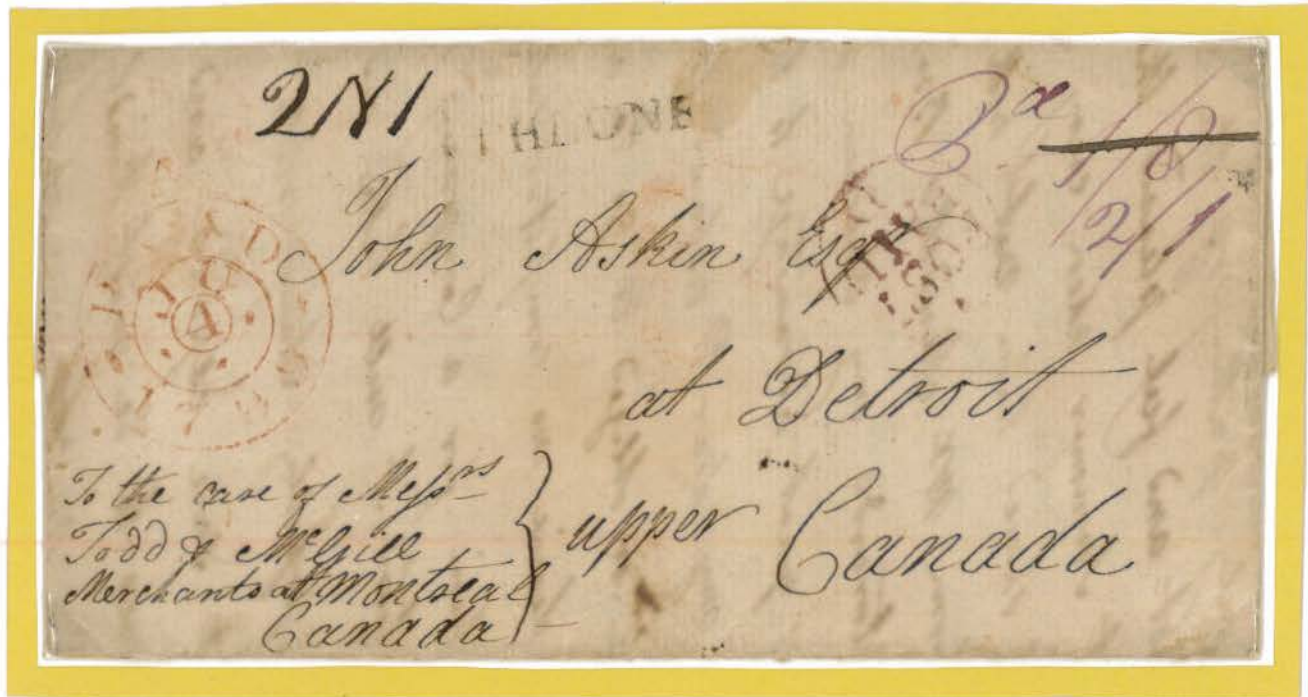 2N1
THLONE
Pd 1/8
2/1
John Askin Esqr
at Detroit
upper Canada
To the care of Messrs
Todd & McGill
Merchants at Montreal
Canada
PAID
JU
4